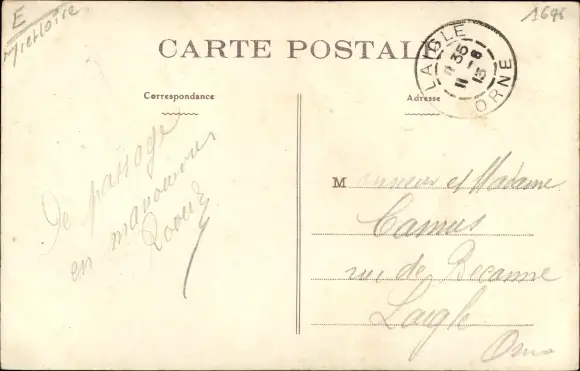 E
1696
CARTE POSTALE
LAIGLE
11 35
1-8
13
ORNE
Correspondance
Adresse
De passage
en manoeuvres
Monsieur et Madame
Camus
rue de Becanne
Laigle
Orne